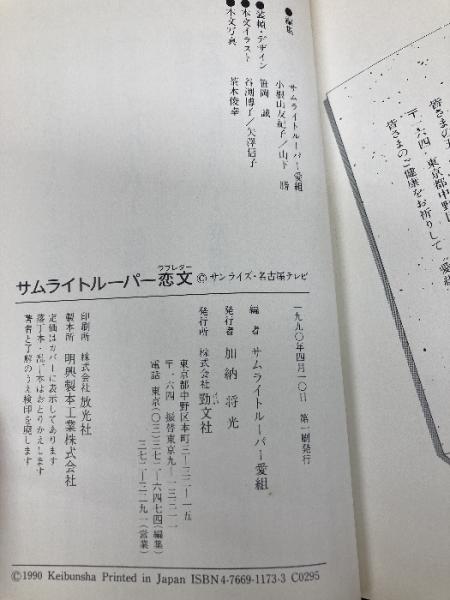 ●編集
●装幀・デザイン
●本文イラスト
●本文写真
サムライトルーパー愛組
小根山友紀子/山下 勝
笹岡 誠
谷渕博子/矢澤信子
茶木俊幸
サムライトルーパー恋文 ©サンライズ・名古屋テレビ
ラブレター
一九九〇年四月一〇日 第一刷発行
編者 サムライトルーパー愛組
発行者 加納将光
発行所 株式会社 勁文社
東京都中野区本町三-三二-一五
〒一六四 振替東京九-一三一二一一
電話 東京(〇三)三七二-六四七四(編集)
三七二-三二九一(営業)
印刷所 株式会社 放光社
製本所 明興製本工業株式会社
定価はカバーに表示してあります
落丁本・乱丁本はおとりかえします
著者と了解のうえ検印を廃します
©1990 Keibunsha Printed in Japan ISBN4-7669-1173-3 C0295
皆さまの
〒一六四・東京都中野区
皆さまのご健康をお祈りして
愛組